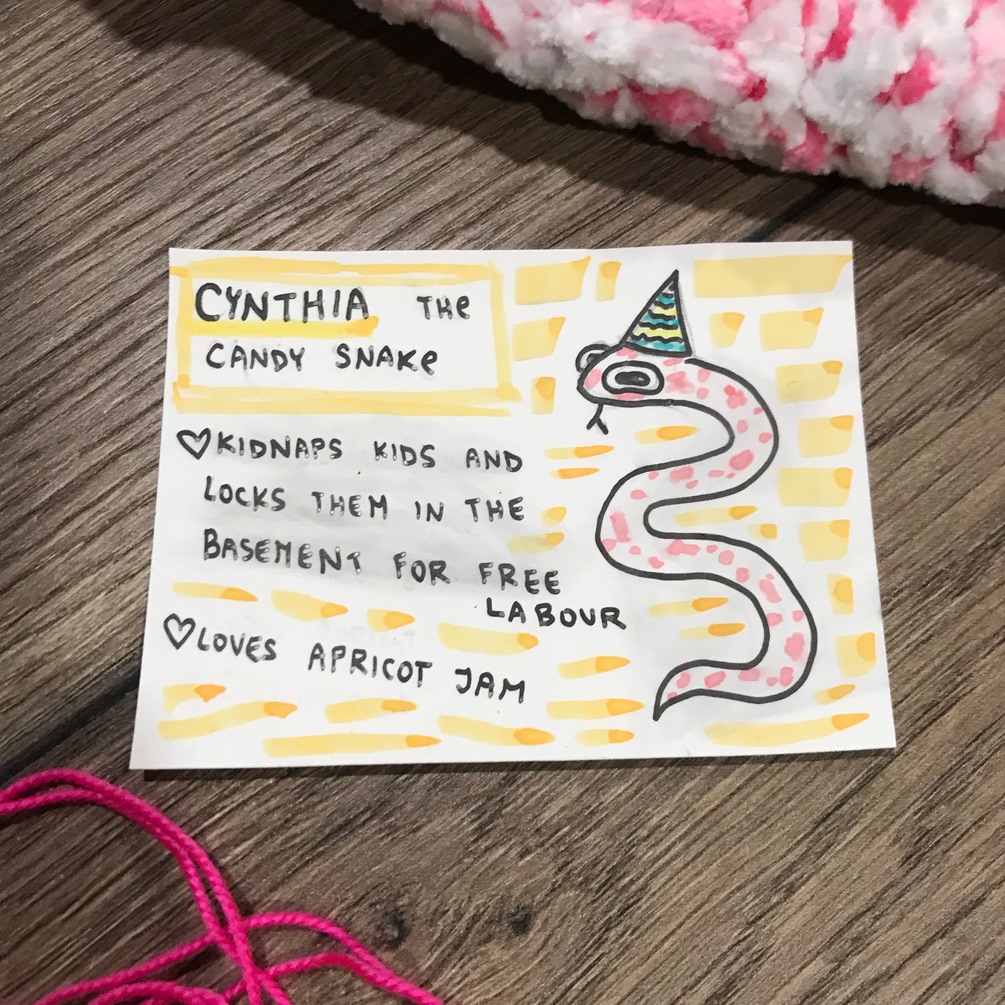 CYNTHIA THe
CANDY SNAKe
♡KIDNAPS KIDS AND
LOCKS THEM IN THE
BASEMENT FOR FREE
LABOUR
♡LOVES APRICOT JAM